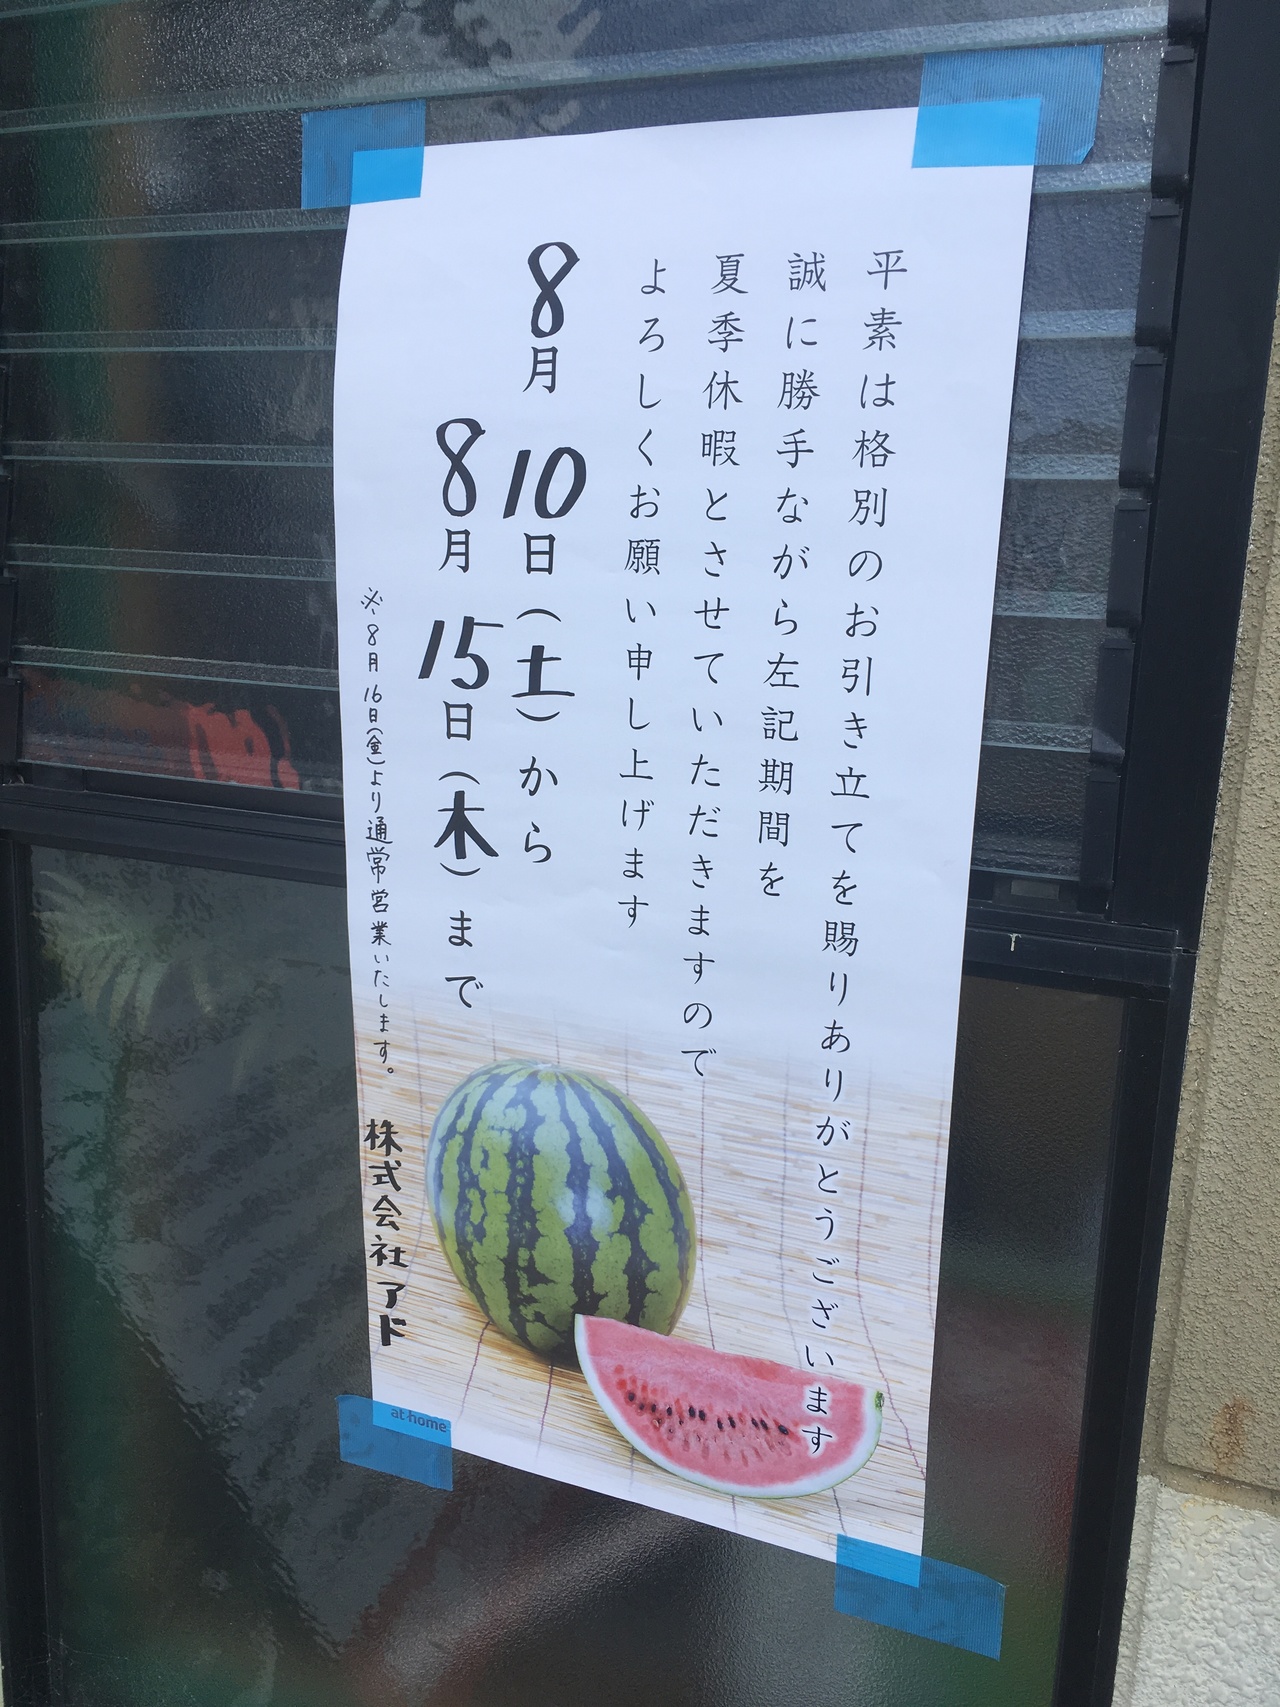 平素は格別のお引き立てを賜りありがとうございます
誠に勝手ながら左記期間を
夏季休暇とさせていただきますので
よろしくお願い申し上げます
8月10日(土)から
8月15日(木)まで
※8月16日(金)より通常営業いたします。
株式会社アド
at home